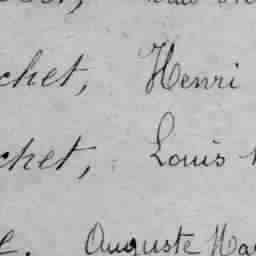 chet, Henri
chet, Louis
Auguste